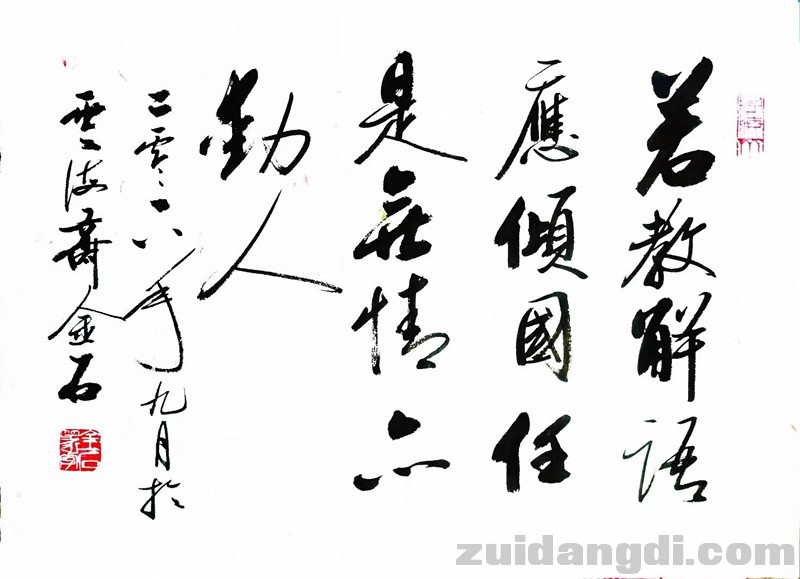 若教解語
應傾國任
是無情亦
動人
二零一八年九月於
雲海齋金石
zuidangdi.com